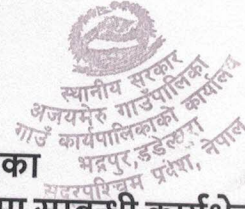 स्थानीय सरकार
अजयमेरु गाउँपालिका
गाउँ कार्यपालिकाको कार्यालय
भद्रपुर, डडेल्धुरा
सुदूरपश्चिम प्रदेश, नेपाल
का